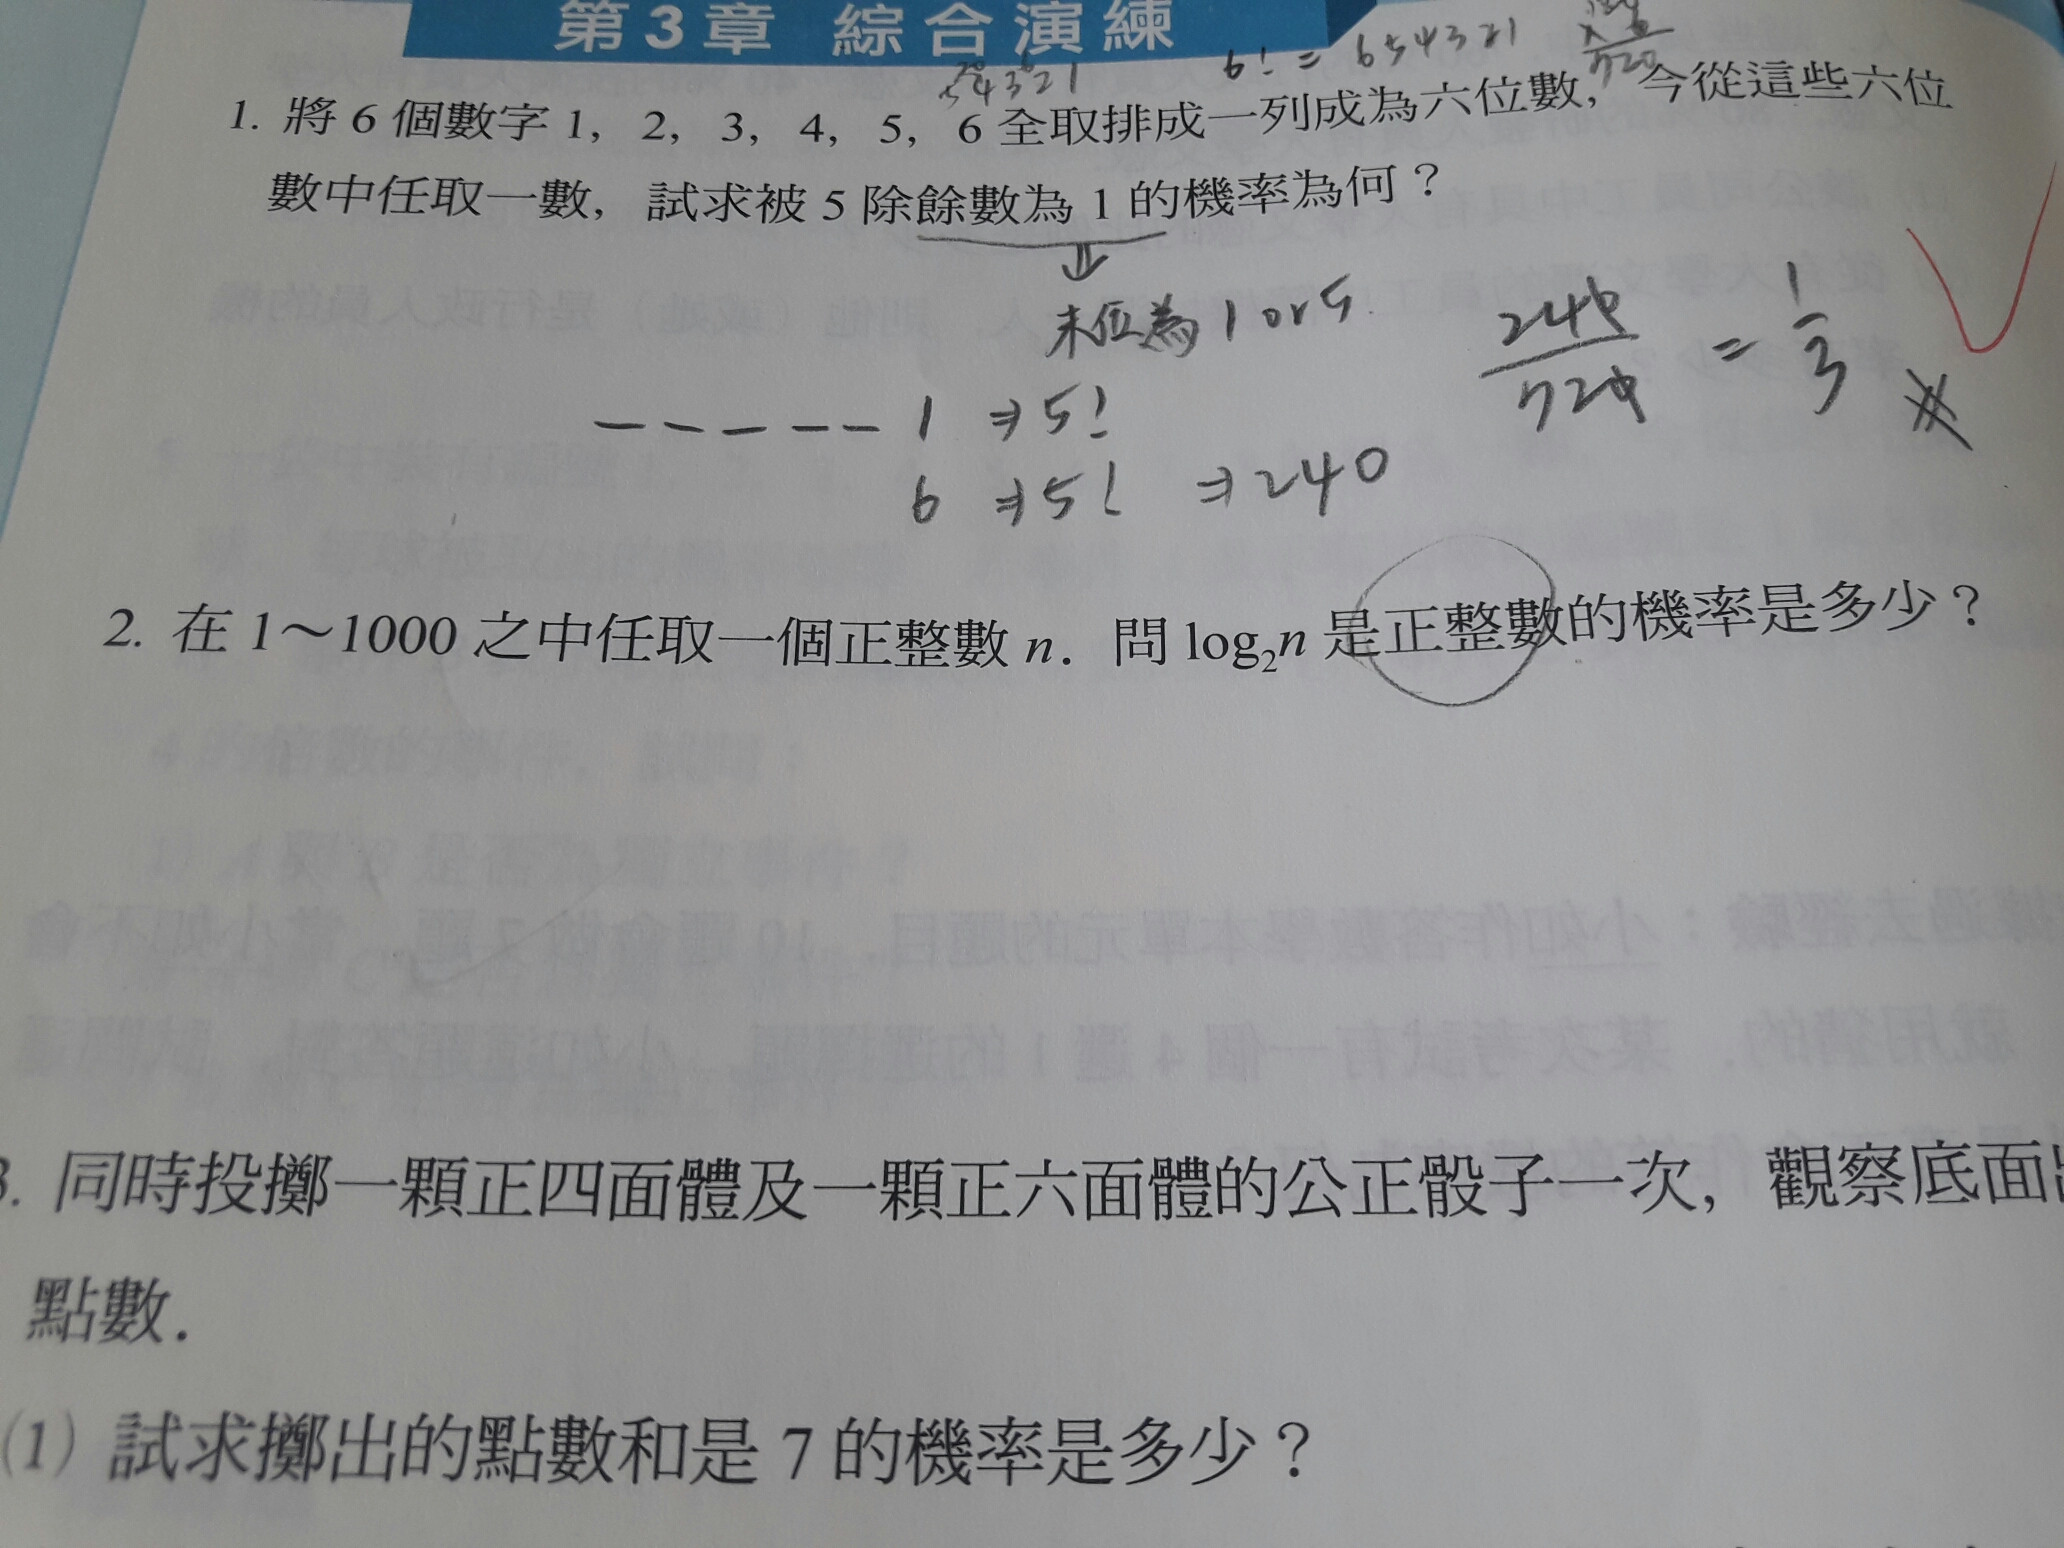 第3章 綜合演練
6! = 654321
720
54321
1. 將 6 個數字 1, 2, 3, 4, 5, 6 全取排成一列成為六位數, 今從這些六位
數中任取一數, 試求被 5 除餘數為 1 的機率為何?
⇓
末位為 1 or 5.
240/720 = 1/3
_ _ _ _ _ 1 ⇒ 5!
6 ⇒ 5! ⇒ 240
2. 在 1～1000 之中任取一個正整數 n. 問 log₂n 是正整數的機率是多少?
3. 同時投擲一顆正四面體及一顆正六面體的公正骰子一次, 觀察底面
點數.
(1) 試求擲出的點數和是 7 的機率是多少?